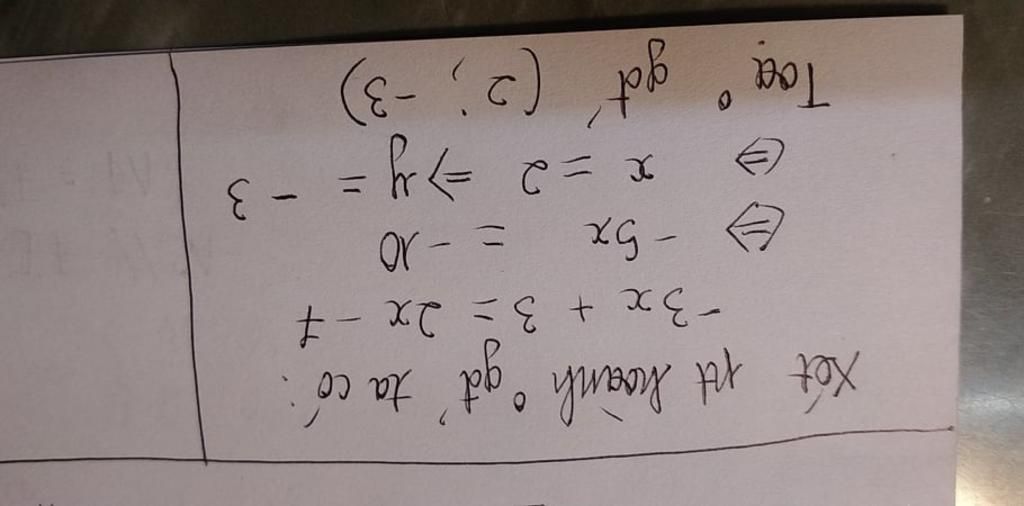 Xét pt hoành ° gđ' ta có:
-3x + 3 = 2x - 7
⇔ -5x = -10
⇔ x = 2 => y = -3
Toạ ° gđ' (2; -3)